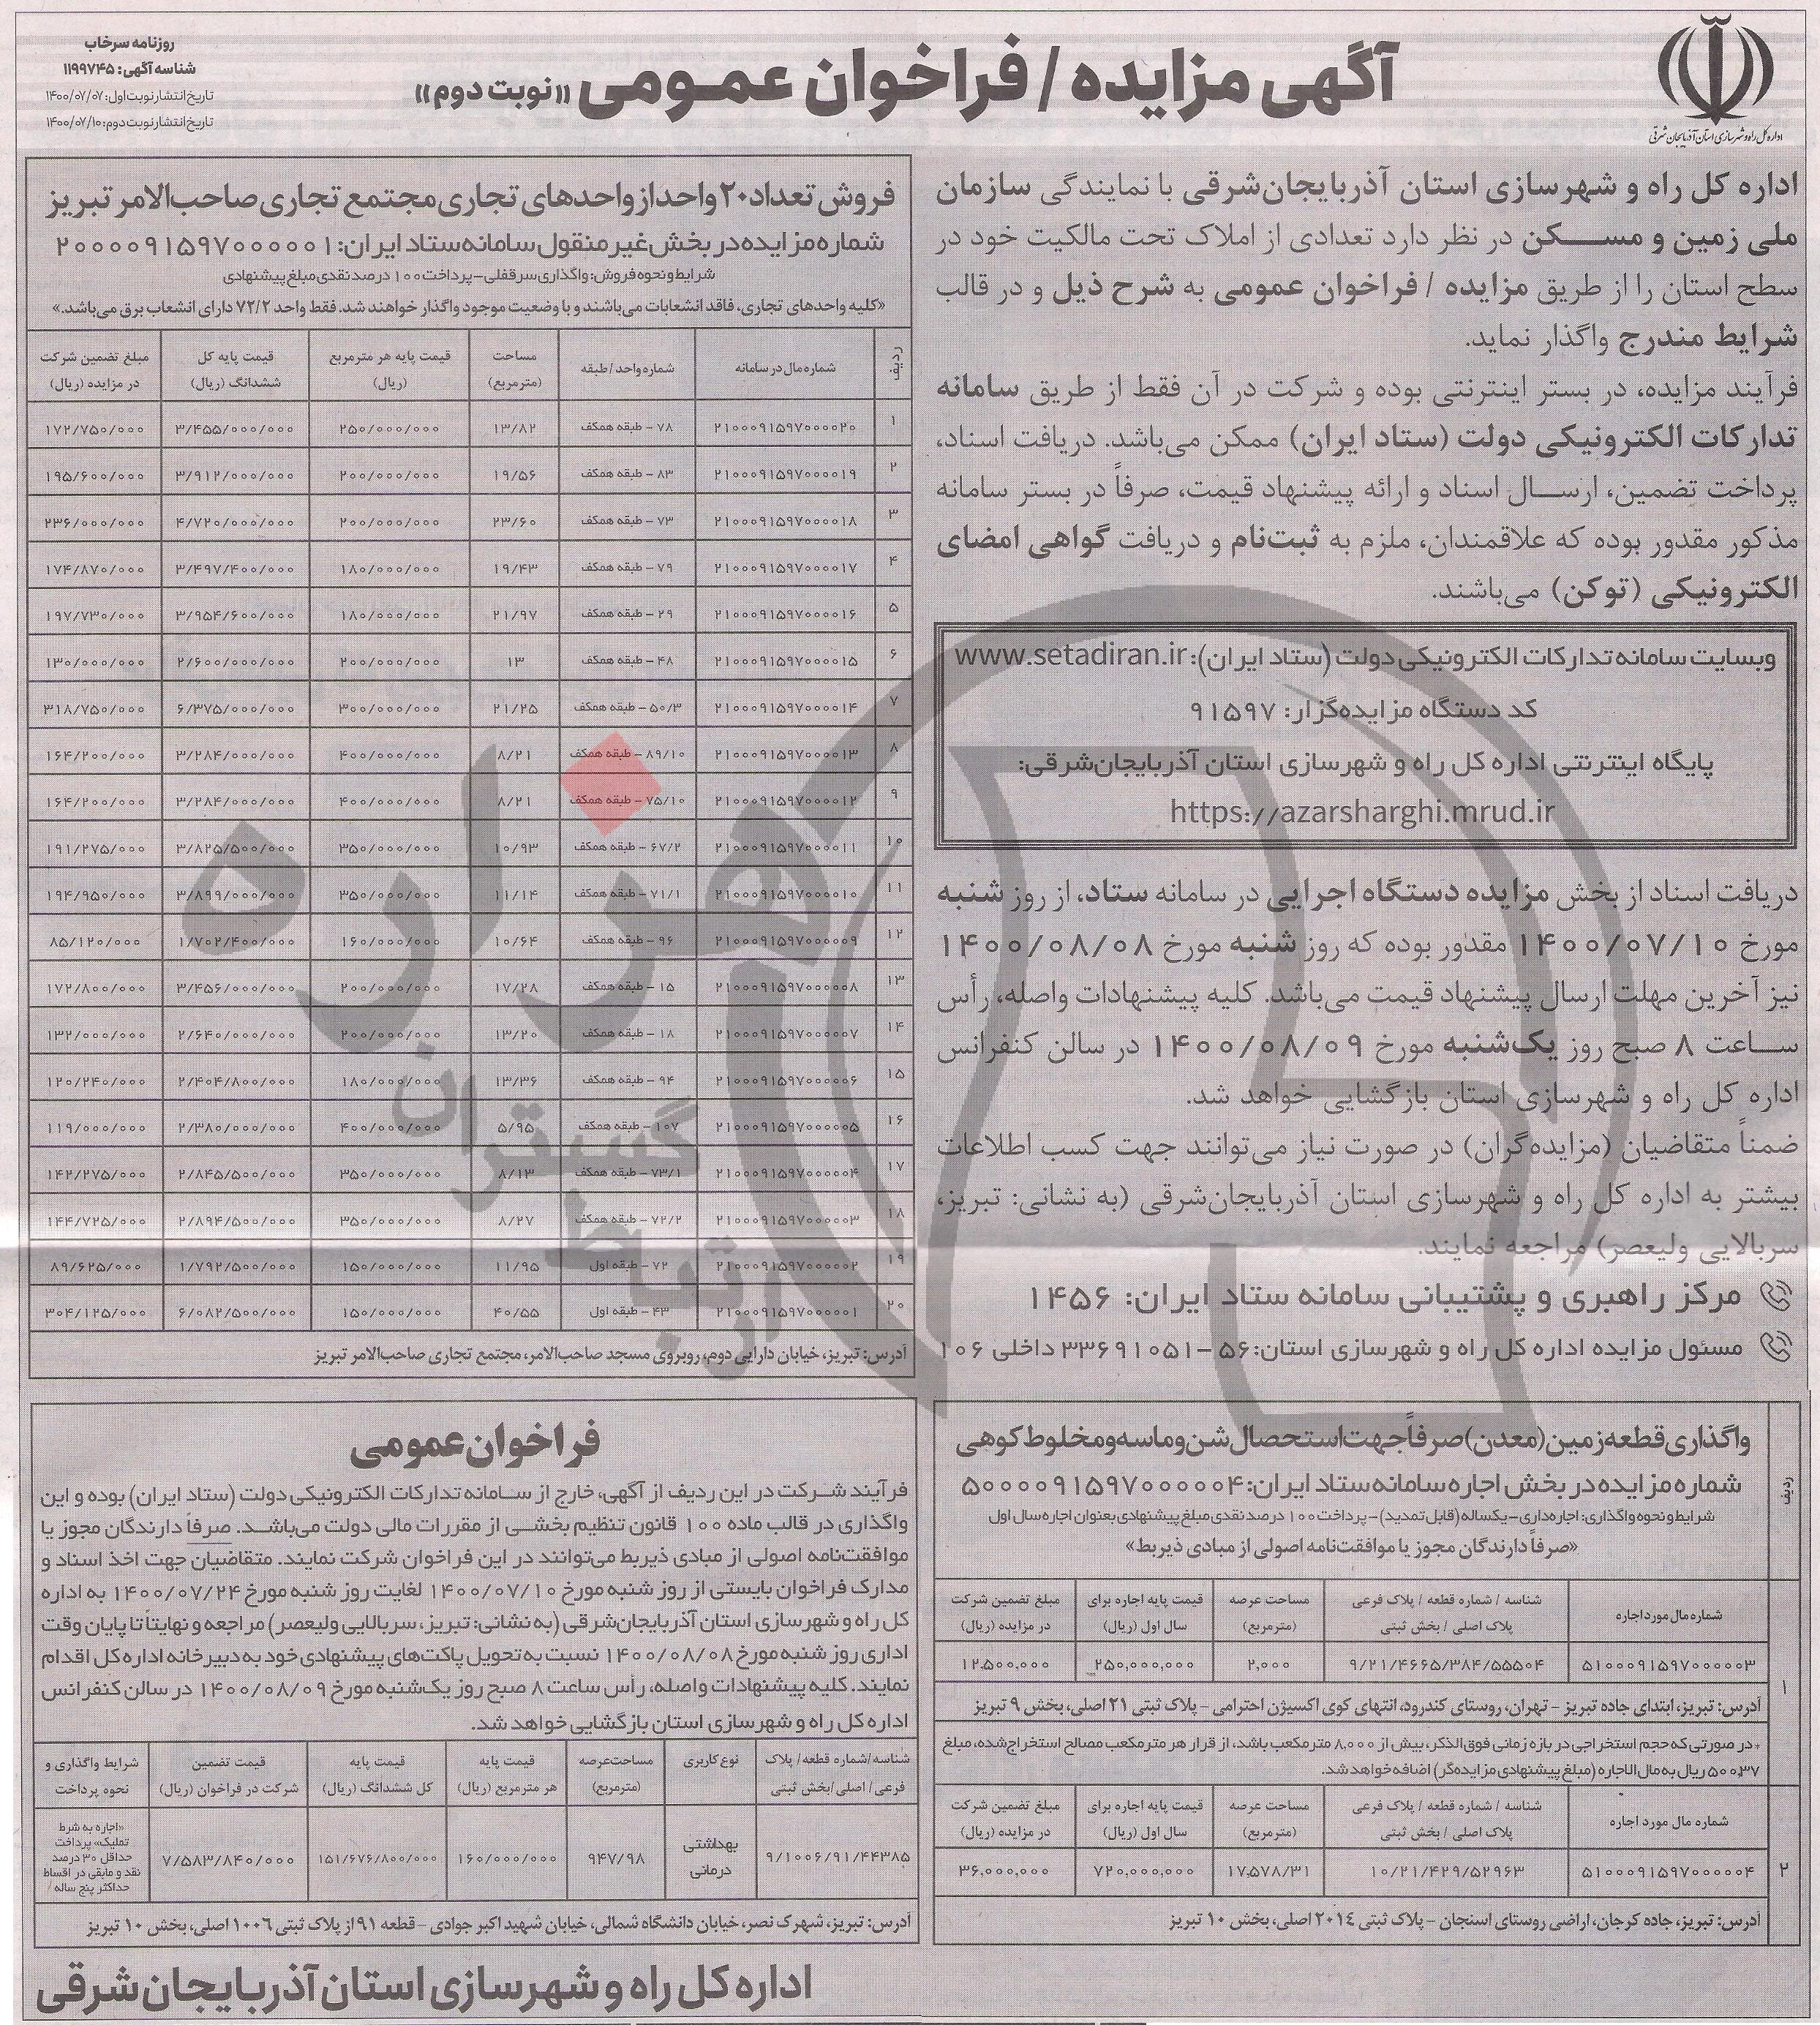 روزنامه سرخاب
شناسه آگهی: ۱۱۹۹۷۴۵
تاریخ انتشار نوبت اول: ۱۴۰۰/۰۷/۰۷
تاریخ انتشار نوبت دوم: ۱۴۰۰/۰۷/۱۰
آگهی مزایده / فراخوان عمومی «نوبت دوم»
اداره کل راه و شهرسازی استان آذربایجان شرقی
اداره کل راه و شهرسازی استان آذربایجان‌شرقی با نمایندگی سازمان
ملی زمین و مسکن در نظر دارد تعدادی از املاک تحت مالکیت خود در
سطح استان را از طریق مزایده / فراخوان عمومی به شرح ذیل و در قالب
شرایط مندرج واگذار نماید.
فرآیند مزایده، در بستر اینترنتی بوده و شرکت در آن فقط از طریق سامانه
تدارکات الکترونیکی دولت (ستاد ایران) ممکن می‌باشد. دریافت اسناد،
پرداخت تضمین، ارسال اسناد و ارائه پیشنهاد قیمت، صرفاً در بستر سامانه
مذکور مقدور بوده که علاقمندان، ملزم به ثبت‌نام و دریافت گواهی امضای
الکترونیکی (توکن) می‌باشند.
وبسایت سامانه تدارکات الکترونیکی دولت (ستاد ایران): www.setadiran.ir
کد دستگاه مزایده‌گزار: ۹۱۵۹۷
پایگاه اینترنتی اداره کل راه و شهرسازی استان آذربایجان‌شرقی:
https://azarsharghi.mrud.ir
دریافت اسناد از بخش مزایده دستگاه اجرایی در سامانه ستاد، از روز شنبه
مورخ ۱۴۰۰/۰۷/۱۰ مقدور بوده که روز شنبه مورخ ۱۴۰۰/۰۸/۰۸
نیز آخرین مهلت ارسال پیشنهاد قیمت می‌باشد. کلیه پیشنهادات واصله، رأس
ساعت ۸ صبح روز یک‌شنبه مورخ ۱۴۰۰/۰۸/۰۹ در سالن کنفرانس
اداره کل راه و شهرسازی استان بازگشایی خواهد شد.
ضمناً متقاضیان (مزایده‌گران) در صورت نیاز می‌توانند جهت کسب اطلاعات
بیشتر به اداره کل راه و شهرسازی استان آذربایجان‌شرقی (به نشانی: تبریز،
سربالایی ولیعصر) مراجعه نمایند.
مرکز راهبری و پشتیبانی سامانه ستاد ایران: ۱۴۵۶
مسئول مزایده اداره کل راه و شهرسازی استان: ۵۶-۳۳۶۹۱۰۵۱ داخلی ۱۰۶
فروش تعداد ۲۰ واحد از واحدهای تجاری مجتمع تجاری صاحب‌الامر تبریز
شماره مزایده در بخش غیرمنقول سامانه ستاد ایران: ۲۰۰۰۰۹۱۵۹۷۰۰۰۰۰۱
شرایط و نحوه فروش: واگذاری سرقفلی - پرداخت ۱۰۰ درصد نقدی مبلغ پیشنهادی
«کلیه واحدهای تجاری، فاقد انشعابات می‌باشند و با وضعیت موجود واگذار خواهند شد. فقط واحد ۷۲/۲ دارای انشعاب برق می‌باشد.»
ردیف | شماره مال در سامانه | شماره واحد / طبقه | مساحت (مترمربع) | قیمت پایه هر مترمربع (ریال) | قیمت پایه کل ششدانگ (ریال) | مبلغ تضمین شرکت در مزایده (ریال)
۱ | ۲۱۰۰۰۹۱۵۹۷۰۰۰۰۲۰ | ۷۸ - طبقه همکف | ۱۳/۸۲ | ۲۵۰/۰۰۰/۰۰۰ | ۳/۴۵۵/۰۰۰/۰۰۰ | ۱۷۲/۷۵۰/۰۰۰
۲ | ۲۱۰۰۰۹۱۵۹۷۰۰۰۰۱۹ | ۸۳ - طبقه همکف | ۱۹/۵۶ | ۲۰۰/۰۰۰/۰۰۰ | ۳/۹۱۲/۰۰۰/۰۰۰ | ۱۹۵/۶۰۰/۰۰۰
۳ | ۲۱۰۰۰۹۱۵۹۷۰۰۰۰۱۸ | ۷۳ - طبقه همکف | ۲۳/۶۰ | ۲۰۰/۰۰۰/۰۰۰ | ۴/۷۲۰/۰۰۰/۰۰۰ | ۲۳۶/۰۰۰/۰۰۰
۴ | ۲۱۰۰۰۹۱۵۹۷۰۰۰۰۱۷ | ۷۹ - طبقه همکف | ۱۹/۴۳ | ۱۸۰/۰۰۰/۰۰۰ | ۳/۴۹۷/۴۰۰/۰۰۰ | ۱۷۴/۸۷۰/۰۰۰
۵ | ۲۱۰۰۰۹۱۵۹۷۰۰۰۰۱۶ | ۲۹ - طبقه همکف | ۲۱/۹۷ | ۱۸۰/۰۰۰/۰۰۰ | ۳/۹۵۴/۶۰۰/۰۰۰ | ۱۹۷/۷۳۰/۰۰۰
۶ | ۲۱۰۰۰۹۱۵۹۷۰۰۰۰۱۵ | ۴۸ - طبقه همکف | ۱۳ | ۲۰۰/۰۰۰/۰۰۰ | ۲/۶۰۰/۰۰۰/۰۰۰ | ۱۳۰/۰۰۰/۰۰۰
۷ | ۲۱۰۰۰۹۱۵۹۷۰۰۰۰۱۴ | ۵۰/۳ - طبقه همکف | ۲۱/۲۵ | ۳۰۰/۰۰۰/۰۰۰ | ۶/۳۷۵/۰۰۰/۰۰۰ | ۳۱۸/۷۵۰/۰۰۰
۸ | ۲۱۰۰۰۹۱۵۹۷۰۰۰۰۱۳ | ۸۹/۱۰ - طبقه همکف | ۸/۲۱ | ۴۰۰/۰۰۰/۰۰۰ | ۳/۲۸۴/۰۰۰/۰۰۰ | ۱۶۴/۲۰۰/۰۰۰
۹ | ۲۱۰۰۰۹۱۵۹۷۰۰۰۰۱۲ | ۷۵/۱۰ - طبقه همکف | ۸/۲۱ | ۴۰۰/۰۰۰/۰۰۰ | ۳/۲۸۴/۰۰۰/۰۰۰ | ۱۶۴/۲۰۰/۰۰۰
۱۰ | ۲۱۰۰۰۹۱۵۹۷۰۰۰۰۱۱ | ۶۷/۲ - طبقه همکف | ۱۰/۹۳ | ۳۵۰/۰۰۰/۰۰۰ | ۳/۸۲۵/۵۰۰/۰۰۰ | ۱۹۱/۲۷۵/۰۰۰
۱۱ | ۲۱۰۰۰۹۱۵۹۷۰۰۰۰۱۰ | ۷۱/۱ - طبقه همکف | ۱۱/۱۴ | ۳۵۰/۰۰۰/۰۰۰ | ۳/۸۹۹/۰۰۰/۰۰۰ | ۱۹۴/۹۵۰/۰۰۰
۱۲ | ۲۱۰۰۰۹۱۵۹۷۰۰۰۰۰۹ | ۹۶ - طبقه همکف | ۱۰/۶۴ | ۱۶۰/۰۰۰/۰۰۰ | ۱/۷۰۲/۴۰۰/۰۰۰ | ۸۵/۱۲۰/۰۰۰
۱۳ | ۲۱۰۰۰۹۱۵۹۷۰۰۰۰۰۸ | ۱۵ - طبقه همکف | ۱۷/۲۸ | ۲۰۰/۰۰۰/۰۰۰ | ۳/۴۵۶/۰۰۰/۰۰۰ | ۱۷۲/۸۰۰/۰۰۰
۱۴ | ۲۱۰۰۰۹۱۵۹۷۰۰۰۰۰۷ | ۱۸ - طبقه همکف | ۱۳/۲۰ | ۲۰۰/۰۰۰/۰۰۰ | ۲/۶۴۰/۰۰۰/۰۰۰ | ۱۳۲/۰۰۰/۰۰۰
۱۵ | ۲۱۰۰۰۹۱۵۹۷۰۰۰۰۰۶ | ۹۴ - طبقه همکف | ۱۳/۳۶ | ۱۸۰/۰۰۰/۰۰۰ | ۲/۴۰۴/۸۰۰/۰۰۰ | ۱۲۰/۲۴۰/۰۰۰
۱۶ | ۲۱۰۰۰۹۱۵۹۷۰۰۰۰۰۵ | ۱۰۷ - طبقه همکف | ۵/۹۵ | ۴۰۰/۰۰۰/۰۰۰ | ۲/۳۸۰/۰۰۰/۰۰۰ | ۱۱۹/۰۰۰/۰۰۰
۱۷ | ۲۱۰۰۰۹۱۵۹۷۰۰۰۰۰۴ | ۷۳/۱ - طبقه همکف | ۸/۱۳ | ۳۵۰/۰۰۰/۰۰۰ | ۲/۸۴۵/۵۰۰/۰۰۰ | ۱۴۲/۲۷۵/۰۰۰
۱۸ | ۲۱۰۰۰۹۱۵۹۷۰۰۰۰۰۳ | ۷۲/۲ - طبقه همکف | ۸/۲۷ | ۳۵۰/۰۰۰/۰۰۰ | ۲/۸۹۴/۵۰۰/۰۰۰ | ۱۴۴/۷۲۵/۰۰۰
۱۹ | ۲۱۰۰۰۹۱۵۹۷۰۰۰۰۰۲ | ۷۲ - طبقه اول | ۱۱/۹۵ | ۱۵۰/۰۰۰/۰۰۰ | ۱/۷۹۲/۵۰۰/۰۰۰ | ۸۹/۶۲۵/۰۰۰
۲۰ | ۲۱۰۰۰۹۱۵۹۷۰۰۰۰۰۱ | ۴۳ - طبقه اول | ۴۰/۵۵ | ۱۵۰/۰۰۰/۰۰۰ | ۶/۰۸۲/۵۰۰/۰۰۰ | ۳۰۴/۱۲۵/۰۰۰
آدرس: تبریز، خیابان دارایی دوم، روبروی مسجد صاحب‌الامر، مجتمع تجاری صاحب‌الامر تبریز
هزاره
گستران
ارتباط
واگذاری قطعه زمین (معدن) صرفاً جهت استحصال شن و ماسه و مخلوط کوهی
شماره مزایده در بخش اجاره سامانه ستاد ایران: ۵۰۰۰۰۹۱۵۹۷۰۰۰۰۰۴
شرایط و نحوه واگذاری: اجاره‌داری - یکساله (قابل تمدید) - پرداخت ۱۰۰ درصد نقدی مبلغ پیشنهادی بعنوان اجاره سال اول
«صرفاً دارندگان مجوز یا موافقت‌نامه اصولی از مبادی ذیربط»
ردیف | شماره مال مورد اجاره | شناسه / شماره قطعه / پلاک فرعی پلاک اصلی / بخش ثبتی | مساحت عرصه (مترمربع) | قیمت پایه اجاره برای سال اول (ریال) | مبلغ تضمین شرکت در مزایده (ریال)
۱ | ۵۱۰۰۰۹۱۵۹۷۰۰۰۰۰۳ | ۹/۲۱/۴۶۶۵/۳۸۴/۵۵۵۰۴ | ۲,۰۰۰ | ۲۵۰,۰۰۰,۰۰۰ | ۱۲,۵۰۰,۰۰۰
آدرس: تبریز، ابتدای جاده تبریز - تهران، روستای کندرود، انتهای کوی اکسیژن احترامی - پلاک ثبتی ۲۱ اصلی، بخش ۹ تبریز
* در صورتی که حجم استخراجی در بازه زمانی فوق‌الذکر، بیش از ۸,۰۰۰ مترمکعب باشد، از قرار هر مترمکعب مصالح استخراج‌شده، مبلغ
۳۷,۵۰۰ ریال به مال‌الاجاره (مبلغ پیشنهادی مزایده‌گر) اضافه خواهد شد.
شماره مال مورد اجاره | شناسه / شماره قطعه / پلاک فرعی پلاک اصلی / بخش ثبتی | مساحت عرصه (مترمربع) | قیمت پایه اجاره برای سال اول (ریال) | مبلغ تضمین شرکت در مزایده (ریال)
۲ | ۵۱۰۰۰۹۱۵۹۷۰۰۰۰۰۴ | ۱۰/۲۱/۴۲۹/۵۲۹۶۳ | ۱۷,۵۷۸/۳۱ | ۷۲۰,۰۰۰,۰۰۰ | ۳۶,۰۰۰,۰۰۰
آدرس: تبریز، جاده کرجان، اراضی روستای اسنجان - پلاک ثبتی ۲۰۱۴ اصلی، بخش ۱۰ تبریز
فراخوان عمومی
فرآیند شرکت در این ردیف از آگهی، خارج از سامانه تدارکات الکترونیکی دولت (ستاد ایران) بوده و این
واگذاری در قالب ماده ۱۰۰ قانون تنظیم بخشی از مقررات مالی دولت می‌باشد. صرفاً دارندگان مجوز یا
موافقت‌نامه اصولی از مبادی ذیربط می‌توانند در این فراخوان شرکت نمایند. متقاضیان جهت اخذ اسناد و
مدارک فراخوان بایستی از روز شنبه مورخ ۱۴۰۰/۰۷/۱۰ لغایت روز شنبه مورخ ۱۴۰۰/۰۷/۲۴ به اداره
کل راه و شهرسازی استان آذربایجان‌شرقی (به نشانی: تبریز، سربالایی ولیعصر) مراجعه و نهایتاً تا پایان وقت
اداری روز شنبه مورخ ۱۴۰۰/۰۸/۰۸ نسبت به تحویل پاکت‌های پیشنهادی خود به دبیرخانه اداره کل اقدام
نمایند. کلیه پیشنهادات واصله، رأس ساعت ۸ صبح روز یک‌شنبه مورخ ۱۴۰۰/۰۸/۰۹ در سالن کنفرانس
اداره کل راه و شهرسازی استان بازگشایی خواهد شد.
شناسه/شماره قطعه/ پلاک فرعی/ اصلی/بخش ثبتی | نوع کاربری | مساحت عرصه (مترمربع) | قیمت پایه هر مترمربع (ریال) | قیمت پایه کل ششدانگ (ریال) | قیمت تضمین شرکت در فراخوان (ریال) | شرایط واگذاری و نحوه پرداخت
۹/۱۰۰۶/۹۱/۴۴۳۸۵ | بهداشتی درمانی | ۹۴۷/۹۸ | ۱۶۰/۰۰۰/۰۰۰ | ۱۵۱/۶۷۶/۸۰۰/۰۰۰ | ۷/۵۸۳/۸۴۰/۰۰۰ | «اجاره به شرط تملیک» پرداخت حداقل ۳۰ درصد نقد و مابقی در اقساط حداکثر پنج ساله
آدرس: تبریز، شهرک نصر، خیابان دانشگاه شمالی، خیابان شهید اکبر جوادی - قطعه ۹۱ از پلاک ثبتی ۱۰۰۶ اصلی، بخش ۱۰ تبریز
اداره کل راه و شهرسازی استان آذربایجان‌شرقی